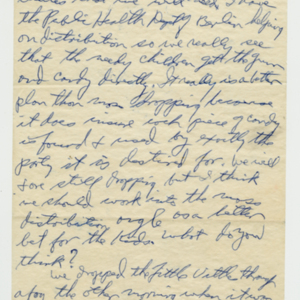 the Public Health Dept of Berlin helping
on distribution so we really see
that the needy children get the gum
and candy directly. It really is a better
plan than mass dropping because
it does insure each piece of candy
is found & used by exactly the
party it is destined for. We will
still dropping but I think
we should work into the mass
distribution angle as a better
bet for the kids. What do you
think?
We dropped the Little Vittles
the other morning when it was